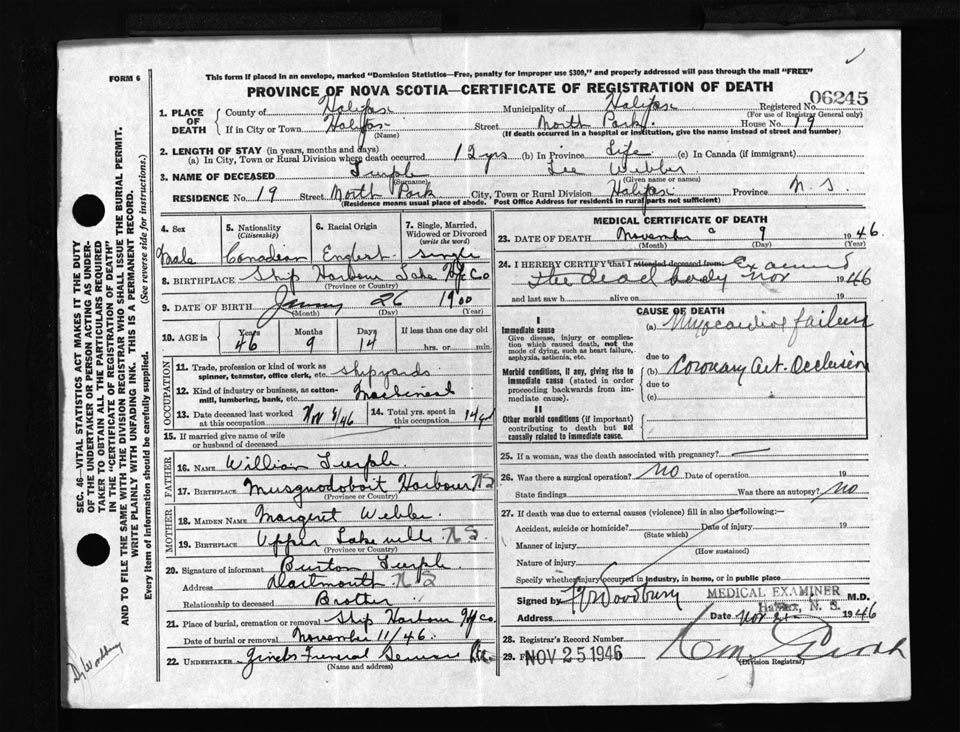 FORM 6
This form if placed in an envelope, marked "Dominion Statistics—Free, penalty for improper use $300," and properly addressed will pass through the mail "FREE"
PROVINCE OF NOVA SCOTIA—CERTIFICATE OF REGISTRATION OF DEATH
06245
1. PLACE OF DEATH
County of Halifax Municipality of Halifax Registered No.
(For use of Registrar General only)
If in City or Town Halifax Street North Park House No. 19
(Name) (If death occurred in a hospital or institution, give the name instead of street and number)
2. LENGTH OF STAY (in years, months and days)
(a) In City, Town or Rural Division where death occurred 12 yrs (b) In Province Life (c) In Canada (if immigrant)
3. NAME OF DECEASED Turple Lee Webber
(Surname) (Given name or names)
RESIDENCE No. 19 Street North Park City, Town or Rural Division Halifax Province N. S
(Residence means usual place of abode. Post Office Address for residents in rural parts not sufficient)
4. Sex 5. Nationality (Citizenship) 6. Racial Origin 7. Single, Married, Widowed or Divorced (write the word)
Male Canadian English Single
8. BIRTHPLACE Ship Harbour Lake Hfx Co
(Province or Country)
9. DATE OF BIRTH 26 1900
(Month) (Day) (Year)
10. AGE in Years Months Days If less than one day old
46 9 14 hrs. or min.
OCCUPATION
11. Trade, profession or kind of work as spinner, teamster, office clerk, etc. Shipyards
12. Kind of industry or business, as cotton-mill, lumbering, bank, etc. Machinest
13. Date deceased last worked at this occupation Nov 8/46 14. Total yrs. spent in this occupation
15. If married give name of wife or husband of deceased
FATHER
16. NAME William Turple
17. BIRTHPLACE Musquodoboit Harbour N S
(Province or Country)
MOTHER
18. MAIDEN NAME Margaret Webber
19. BIRTHPLACE Upper Lakeville N S
(Province or Country)
20. Signature of informant Burton Turple
Address Dartmouth N S
Relationship to deceased Brother
21. Place of burial, cremation or removal Ship Harbour Hfx Co
Date of burial or removal November 11/46
22. UNDERTAKER Funeral Service Ltd
(Name and address)
MEDICAL CERTIFICATE OF DEATH
23. DATE OF DEATH November 9 1946
(Month) (Day) (Year)
24. I HEREBY CERTIFY that I attended deceased from: Examined
the dead body Nov 1946
and last saw h alive on 19
CAUSE OF DEATH
I
Immediate cause
Give disease, injury or complication which caused death, not the mode of dying, such as heart failure, asphyxia, asthenia, etc.
(a) Myocardial failure
due to
Morbid conditions, if any, giving rise to immediate cause (stated in order proceeding backwards from immediate cause).
(b) Coronary Art. Occlusion
due to
(c)
II
Other morbid conditions (if important) contributing to death but not causally related to immediate cause.
25. If a woman, was the death associated with pregnancy?
26. Was there a surgical operation? No Date of operation 19
State findings Was there an autopsy? No
27. If death was due to external causes (violence) fill in also the following:
Accident, suicide or homicide? Date of injury 19
(State which)
Manner of injury
(How sustained)
Nature of injury
Specify whether injury occurred in industry, in home, or in public place
Signed by Woodbury MEDICAL EXAMINER M.D.
Halifax, N. S.
Address Date Nov 1946
28. Registrar's Record Number
29. NOV 25 1946
(Division Registrar)
SEC. 46—VITAL STATISTICS ACT MAKES IT THE DUTY
OF THE UNDERTAKER OR PERSON ACTING AS UNDER-
TAKER TO OBTAIN ALL THE PARTICULARS REQUIRED
IN THE "CERTIFICATE OF REGISTRATION OF DEATH"
AND TO FILE THE SAME WITH THE DIVISION REGISTRAR WHO SHALL ISSUE THE BURIAL PERMIT.
WRITE PLAINLY WITH UNFADING INK. THIS IS A PERMANENT RECORD.
Every item of information should be carefully supplied. (See reverse side for instructions.)